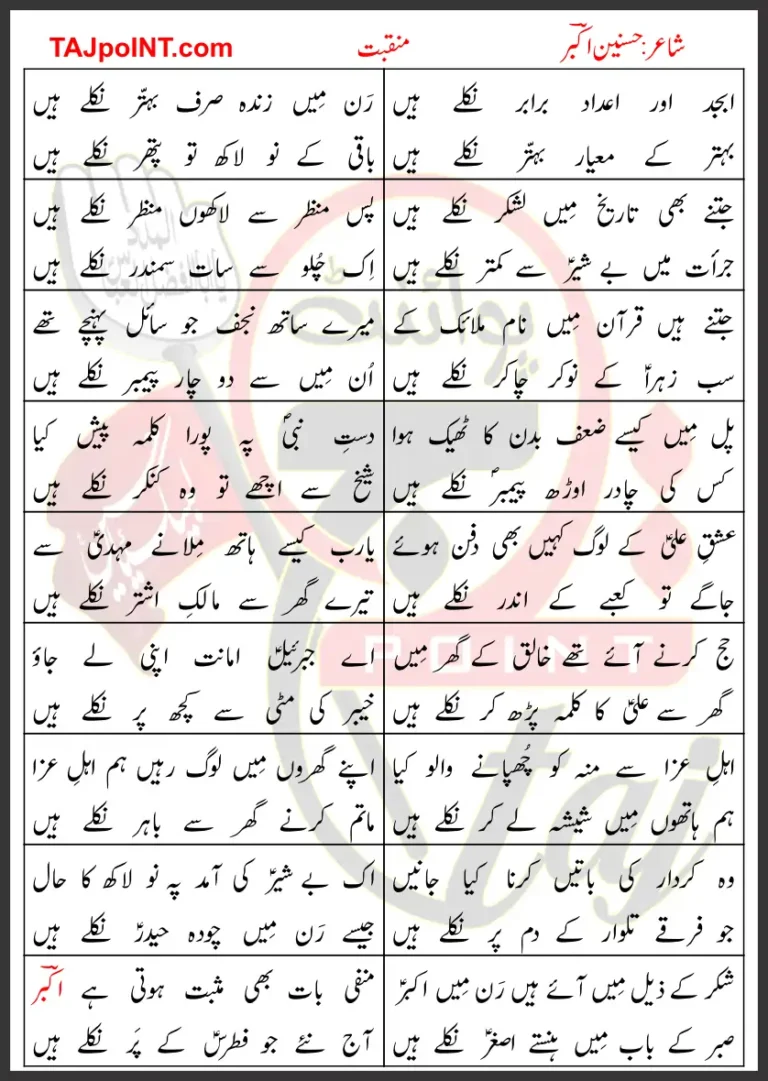 شاعر: حسنین اکبرؔ
منقبت
TAJpoINT.com
ابجد اور اعداد برابر نکلے ہیں
بہتر کے معیار بہتّر نکلے ہیں
رَن مِیں زندہ صرف بہتّر نکلے ہیں
باقی کے نو لاکھ تو پتھر نکلے ہیں
جتنے بھی تاریخ مِیں لشکر نکلے ہیں
جرأت میں بے شیرؑ سے کمتر نکلے ہیں
پس منظر سے لاکھوں منظر نکلے ہیں
اِک چُلو سے سات سمندر نکلے ہیں
جتنے ہیں قرآن مِیں نام ملائک کے
سب زہراؑ کے نوکر چاکر نکلے ہیں
میرے ساتھ نجف جو سائل پہنچے تھے
اُن مِیں سے دو چار پیمبر نکلے ہیں
پل مِیں کیسے ضعف بدن کا ٹھیک ہوا
کس کی چادر اوڑھ پیمبرؐ نکلے ہیں
دستِ نبیؐ پہ پورا کلمہ پیش کیا
شیخ سے اچھے تو وہ کنکر نکلے ہیں
عشقِ علیؑ کے لوگ کہیں بھی دفن ہوئے
جاگے تو کعبے کے اندر نکلے ہیں
یارب کیسے ہاتھ مِلانے مہدیؑ سے
تیرے گھر سے مالکِ اشتر نکلے ہیں
حج کرنے آئے تھے خالق کے گھر مِیں
گھر سے علیؑ کا کلمہ پڑھ کر نکلے ہیں
اے جبرئیلؑ امانت اپنی لے جاؤ
خیبر کی مٹی سے کچھ پر نکلے ہیں
اہلِ عزا سے منہ کو چُھپانے والو کیا
ہم ہاتھوں مِیں شیشہ لے کر نکلے ہیں
اپنے گھروں مِیں لوگ رہیں ہم اہلِ عزا
ماتم کرنے گھر سے باہر نکلے ہیں
وہ کردار کی باتیں کرنا کیا جانیں
جو فرقے تلوار کے دم پر نکلے ہیں
اک بے شیرؑ کی آمد پہ نو لاکھ کا حال
جیسے رَن مِیں چودہ حیدرؑ نکلے ہیں
شکر کے ذیل مِیں آئے ہیں رَن مِیں اکبرؑ
صبر کے باب مِیں ہنستے اصغرؑ نکلے ہیں
منفی بات بھی مثبت ہوتی ہے اکبرؔ
آج نئے جو فطرسؑ کے پَر نکلے ہیں
پوائنٹ
POINT
taj